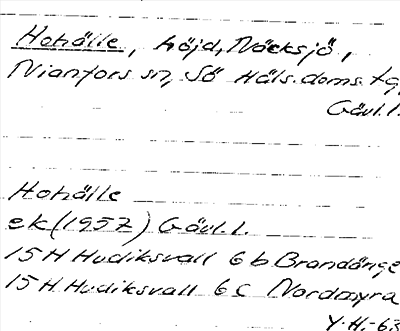 Hohälle, höjd, Näcksjö,
Nianfors sn, Sö Häls. doms. tg,
Gävl.l.
Hohälle
ek (1957) Gävl.l.
15 H Hudiksvall 6 b Brandänge
15 H. Hudiksvall 6 c Nordmyra
Y. H. -63